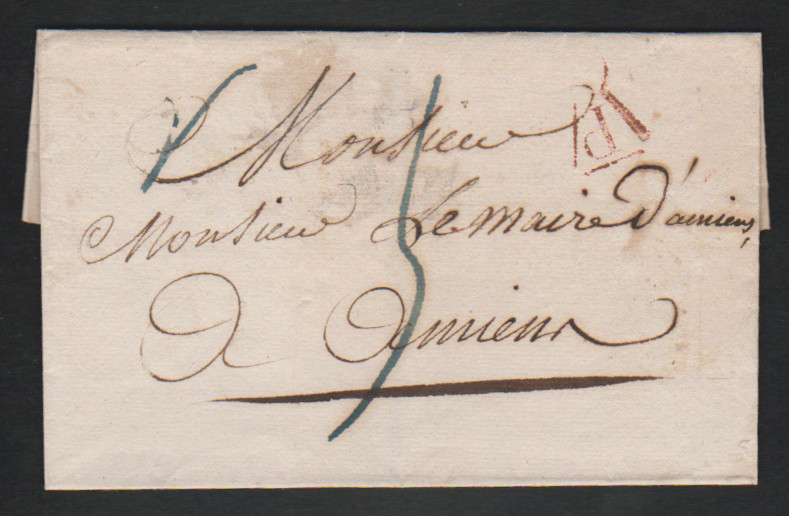 Monsieur
P
Monsieur Le maire D'amiens,
a amiens